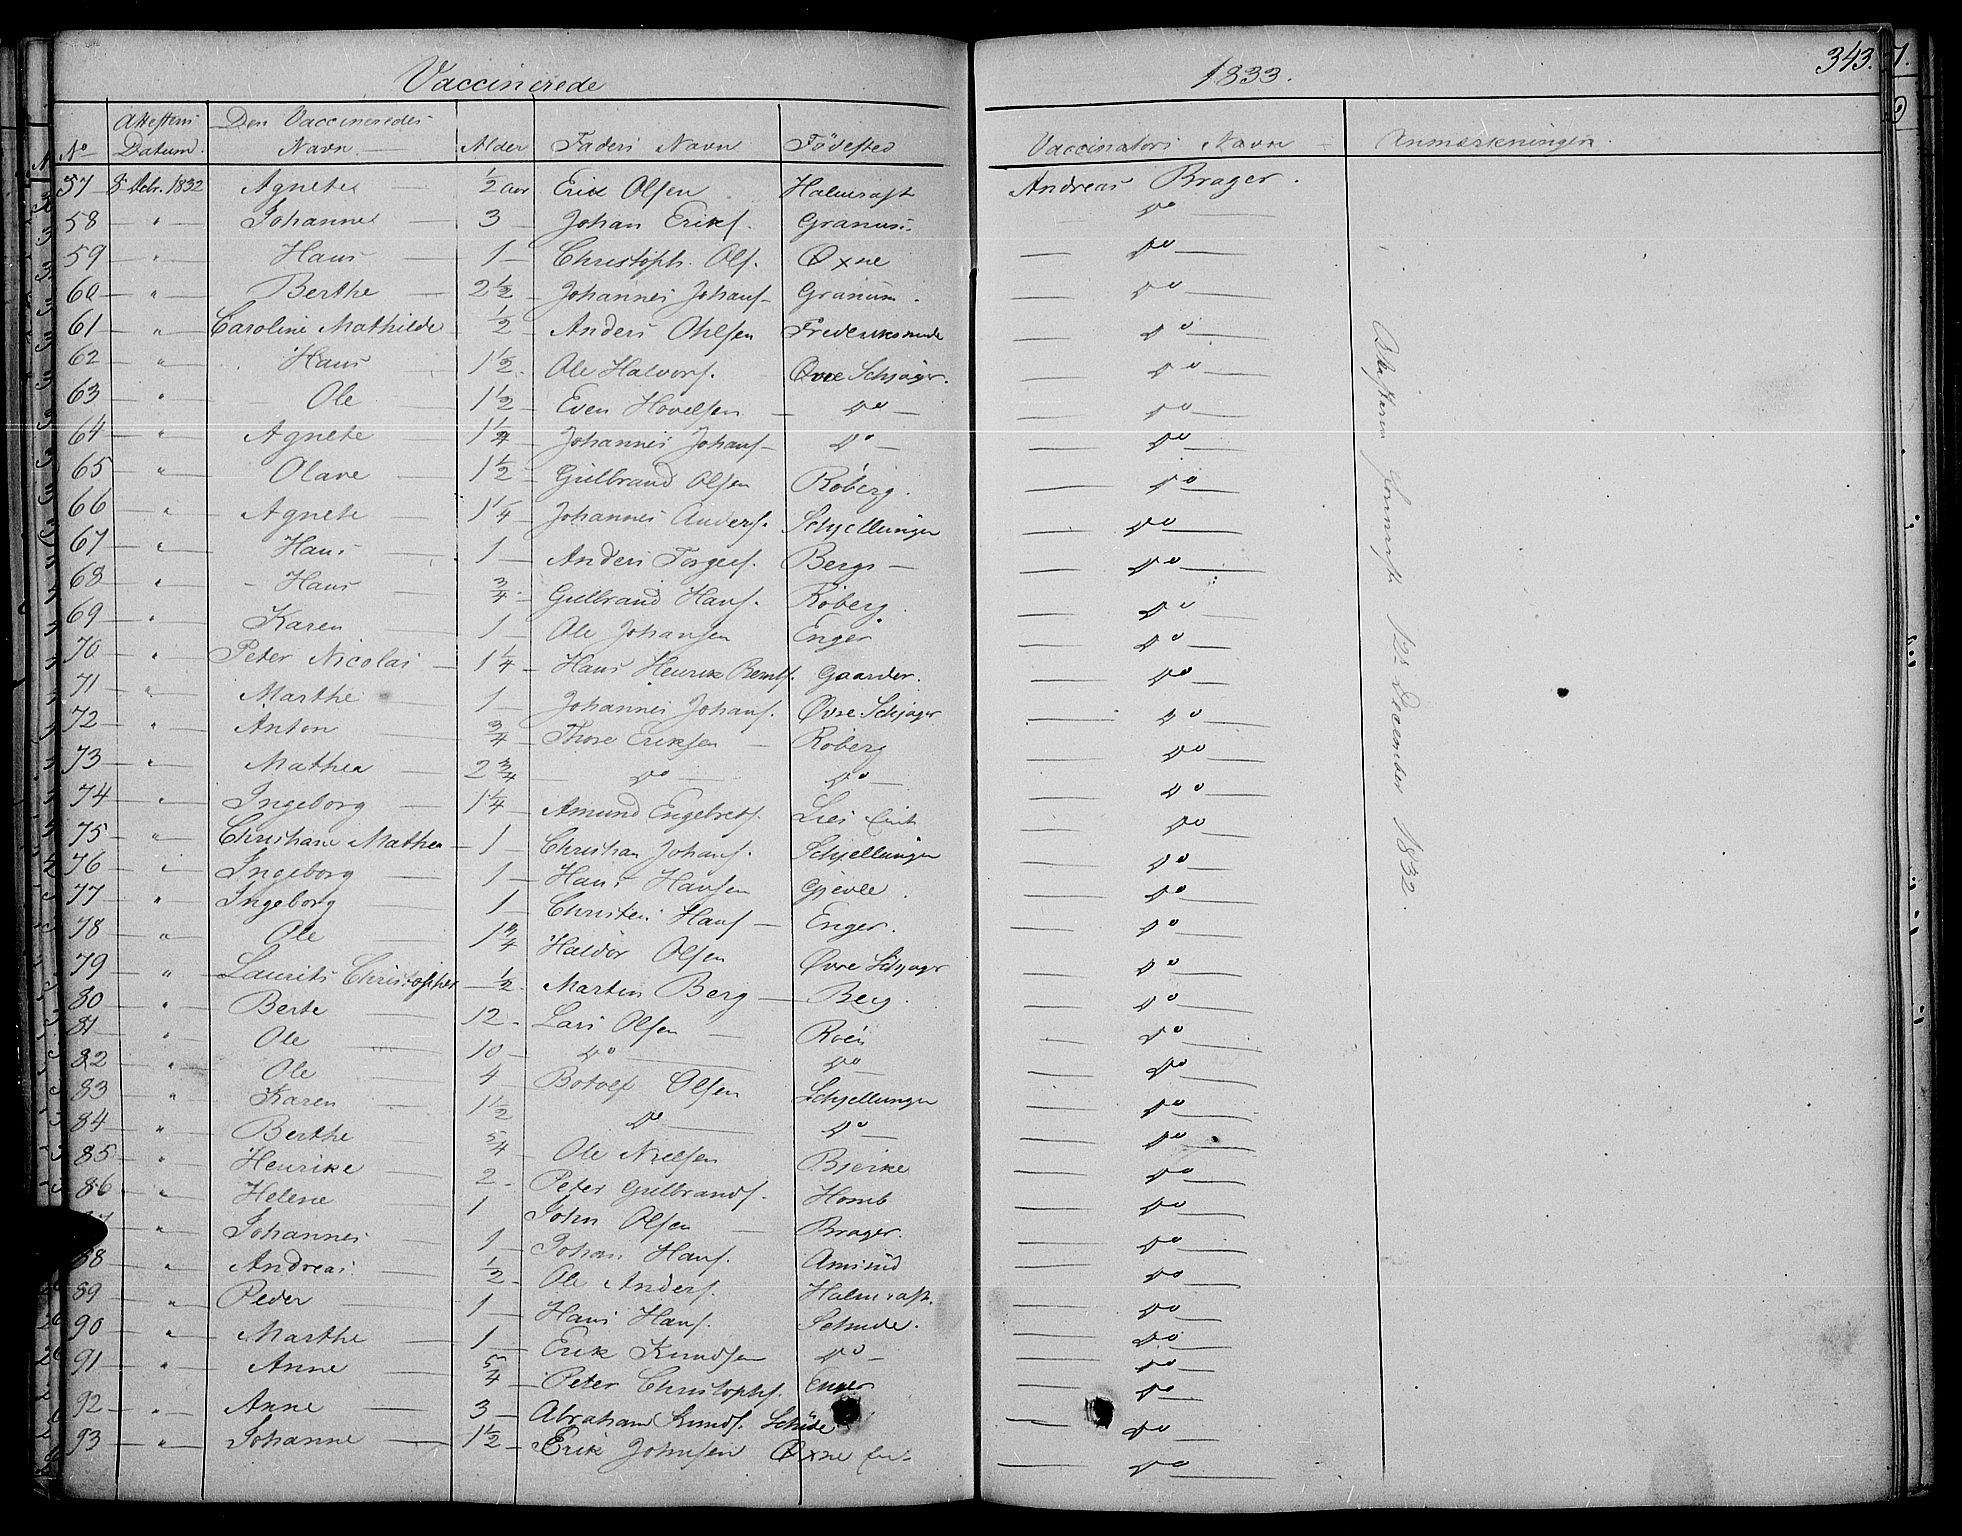 Vaccinerede 1833. 343.
No Attestens Datum. Den Vaccineredes Navn Alder Faders Navn Födested Vaccinators Navn Anmærkninger.
57 8 Febr. 1832 Agnete ½ aar Erik Olsen Halmrast Andreas Brager.
58 " Johannes 3 Johan Eriks. Granum do
59 " Hans 1 Christoph. Ols. Øxne do
60 " Berthe 2½ Johannes Johans. Granum. do
61 " Caroline Mathilde ½ Anders Ohlsen do
62 " Hans 1½ Ole Halvors. Øvre Schjager. do
63 " Ole 1½ Even Hovelsen do do
64 " Agnete 1¼ Johannes Johans. do do
65 " Olave 1½ Gulbrand Olsen Röberg. do
66 " Agnete 1¼ Johannes Anders. Schjellungen do
67 " Hans 1 Anders Torgers. Bergs do
68 " Hans ¾ Gulbrand Hans. Röberg. do
69 " Karen 1 Ole Johansen Enger do
70 " Peter Nicolai 1¼ Hans Henrik Gaarder. do
71 " Marthe 1 Johannes Johans. Øvre Schjager do
72 " Anton ¾ Thore Eriksen Röberg do
73 " Mathea 2¾ do do do
74 " Ingeborg 1¼ Amund Engebrets. Lies do
75 " Christiane Mathea 1 Christian Johans. Schjellungen do
76 " Ingeborg 1 Hans Hansen Gjevle. do
77 " Ingeborg 1 Christen Hans. Enger. do
78 " Ole 1¾ Haldor Olsen Øvre Schjagr do
79 " Laurits Christopher ½ Martin Berg Berg. do
80 " Berte 12 Lars Olsen Roen do
81 " Ole 10 do do do
82 " Ole 4 Botolf Olsen Schjellungen do
83 " Karen 1½ do do do
84 " Berthe 5/4 Ole Nielsen Bjerke do
85 " Henrike 2 Peter Gulbrands. Homb do
86 " Helene 1 John Olsen Brager. do
" Johannes 1 Johan Hans. Amlund do
88 " Andreas ½ Ole Anders. Halmrast. do
89 " Peder 1 Hans Hans. Schude. do
90 " Marthe 1 Erik Knudsen do do
91 " Anne 5/4 Peter Christophs. Enger do
92 " Anne 3 Abraham Knuds. Schude do
93 " Johanne 1½ Erik Johnsen Øxne do
12 December 1832.